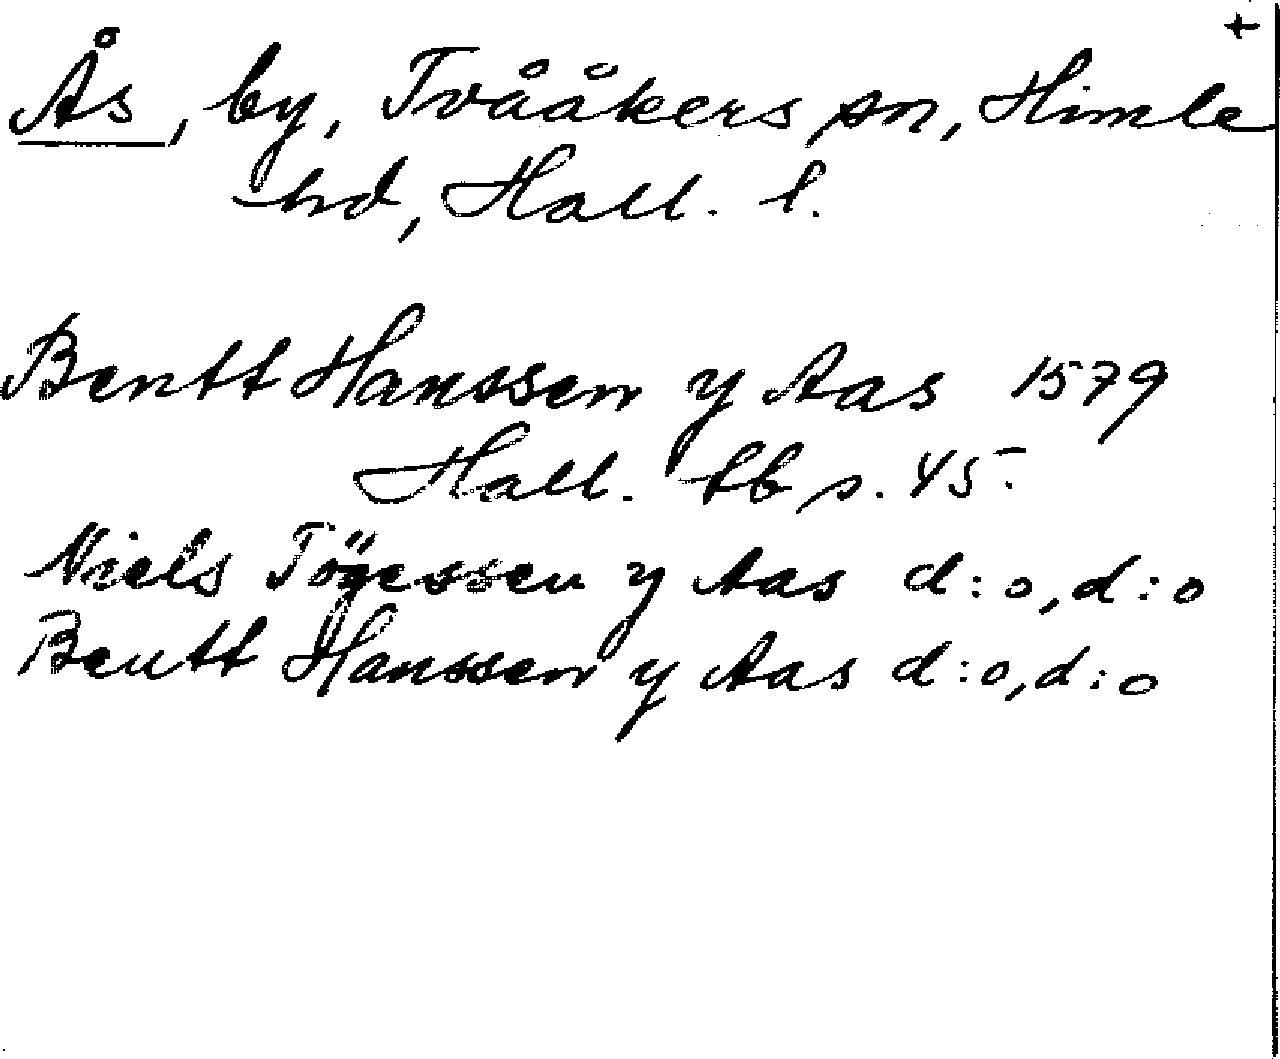 +
Ås, by, Tvååkers sn, Himle
hd, Hall. l.
Bentt Hanssen y Aas 1579
Hall. lb s. 45.
Niels Tögessen y Aas d:o, d:o
Bentt Hanssen y Aas d:o, d:o